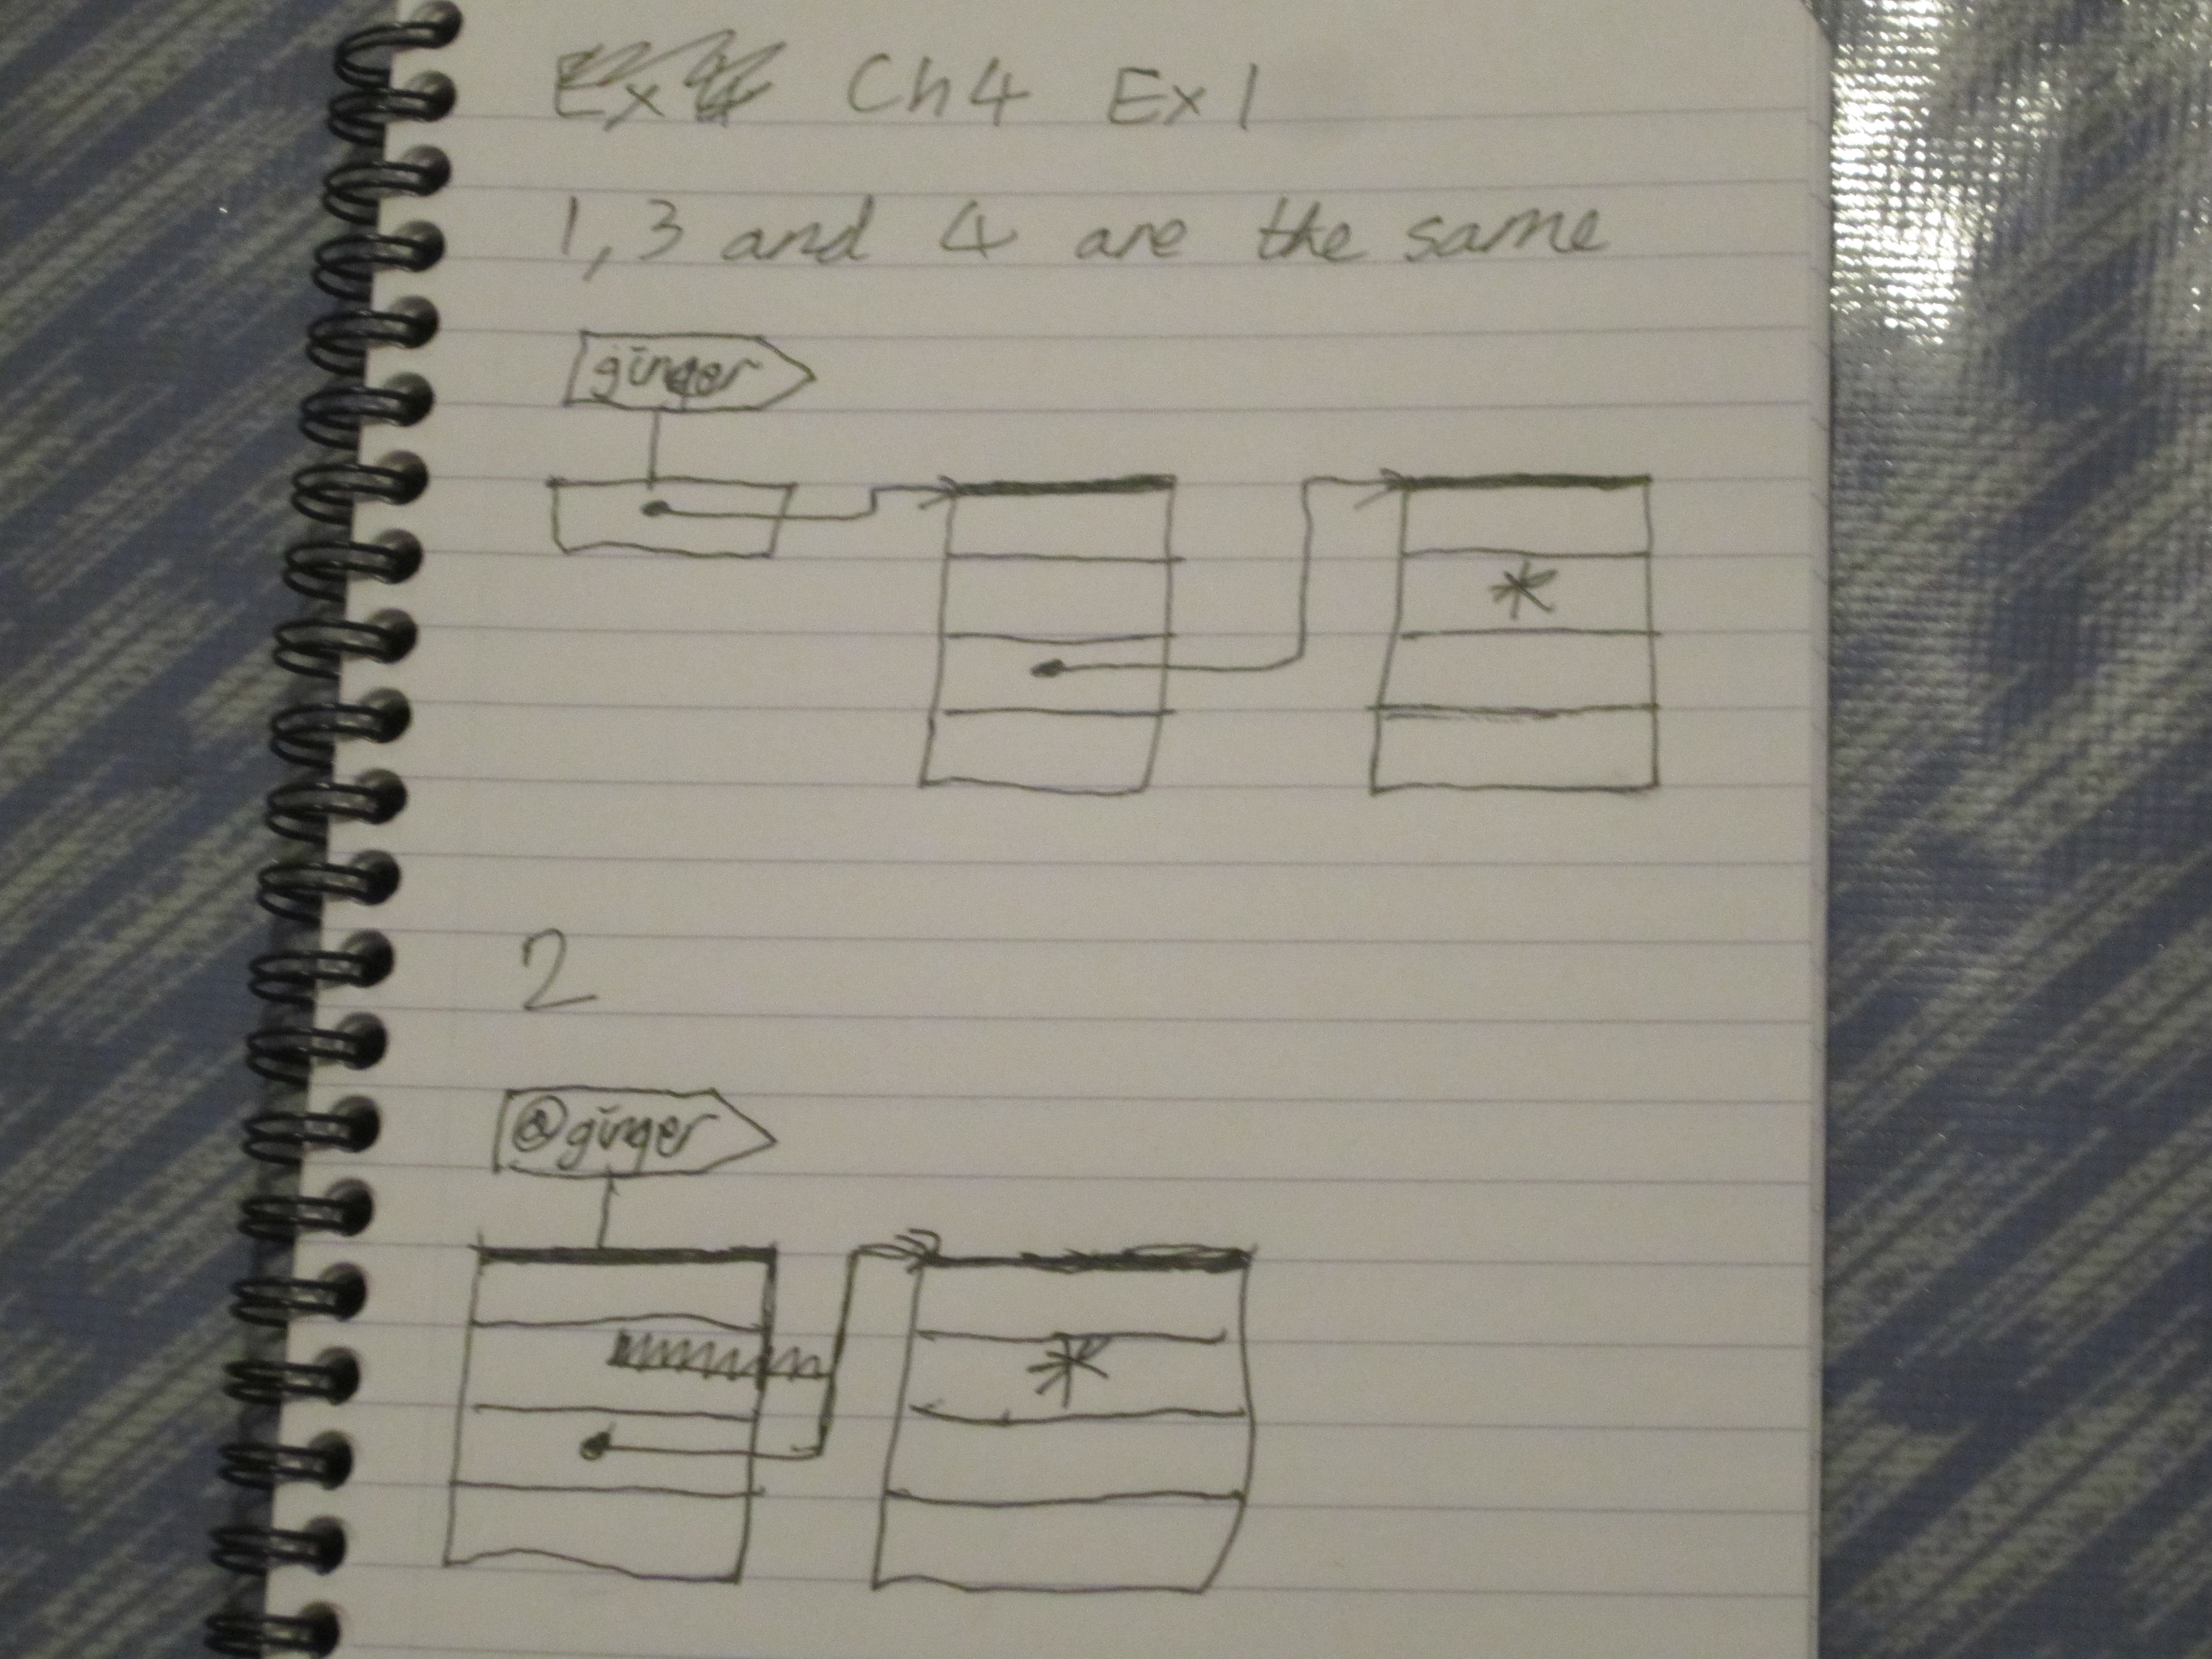 Ex 4 Ch 4 Ex 1
1, 3 and 4 are the same
ginger
*
2
@ginger
*